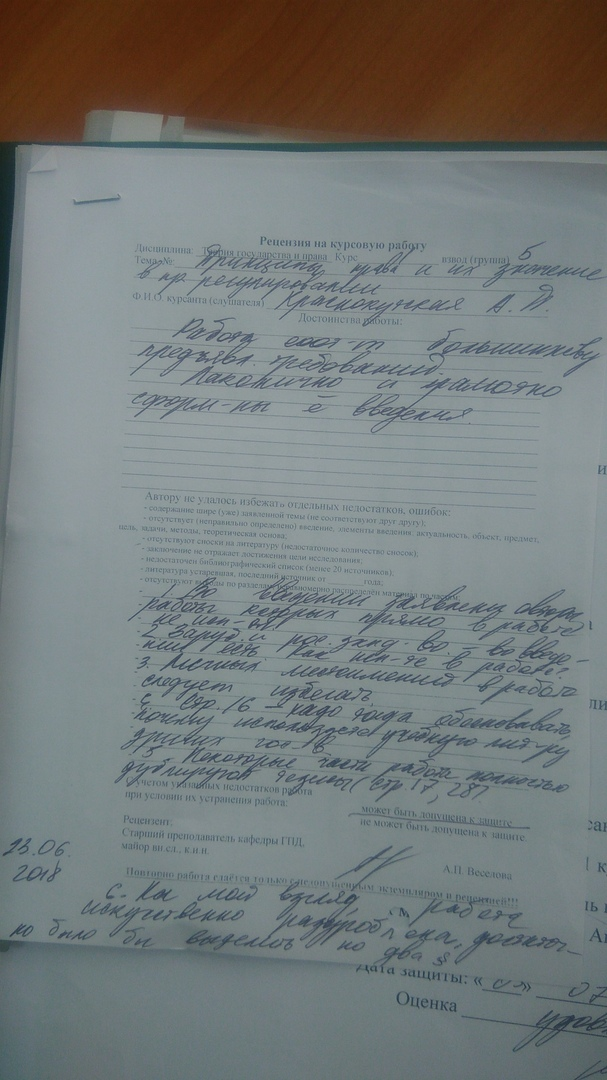 Рецензия на курсовую работу
Дисциплина: Теория государства и права Курс взвод (группа) 5
Тема №: Принципы права и их значение
в пр. регулировании
Ф.И.О. курсанта (слушателя) Краснокутская А.
Достоинства работы:
Работа соот-т большинству
предъявл. требований.
Лаконично и грамотно
сформ-ны введения.
Автору не удалось избежать отдельных недостатков, ошибок:
- содержание шире (уже) заявленной темы (не соответствуют друг другу);
- отсутствует (неправильно определено) введение, элементы введения: актуальность, объект, предмет,
цель, задачи, методы, теоретическая основа;
- отсутствуют сноски на литературу (недостаточное количество сносок);
- заключение не отражает достижения цели исследования;
- недостаточен библиографический список (менее 20 источников);
- литература устаревшая, последний источник от года;
- отсутствуют выводы по разделам, неравномерно распределён материал по частям;
1. Во введении заявлены авторы,
работы которых прямо в работе
не исп-ся.
2. Заруб. и рос. зак-во - во введе-
нии есть. Как исп-те в работе?
3. Личных местоимений в работе
следует избегать
4. стр. 16 - надо тогда обосновывать,
почему используете учебную лит-ру
других гос-в
5. Некоторые части работы полностью
дублируют тезисы (стр. 17, 28)
С учетом указанных недостатков работа
при условии их устранения работа:
может быть допущена к защите
не может быть допущена к защите.
Рецензент:
Старший преподаватель кафедры ГПД,
майор вн.сл., к.и.н.
А.П. Веселова
23.06.
2018
Повторно работа сдаётся только с недопущенным экземпляром и рецензией!!!
6. На мой взгляд, работа
искусственно раздроблена, достаточ-
но было бы выделить по два §
Дата защиты: « » 07
Оценка удов